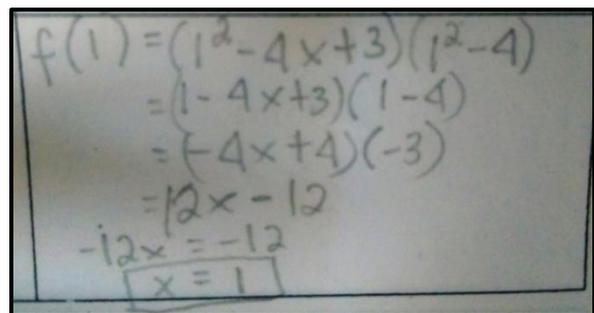 f(1) = (1² - 4x + 3)(1² - 4)
= (1 - 4x + 3)(1 - 4)
= (-4x + 4)(-3)
= 12x - 12
-12x = -12
x = 1